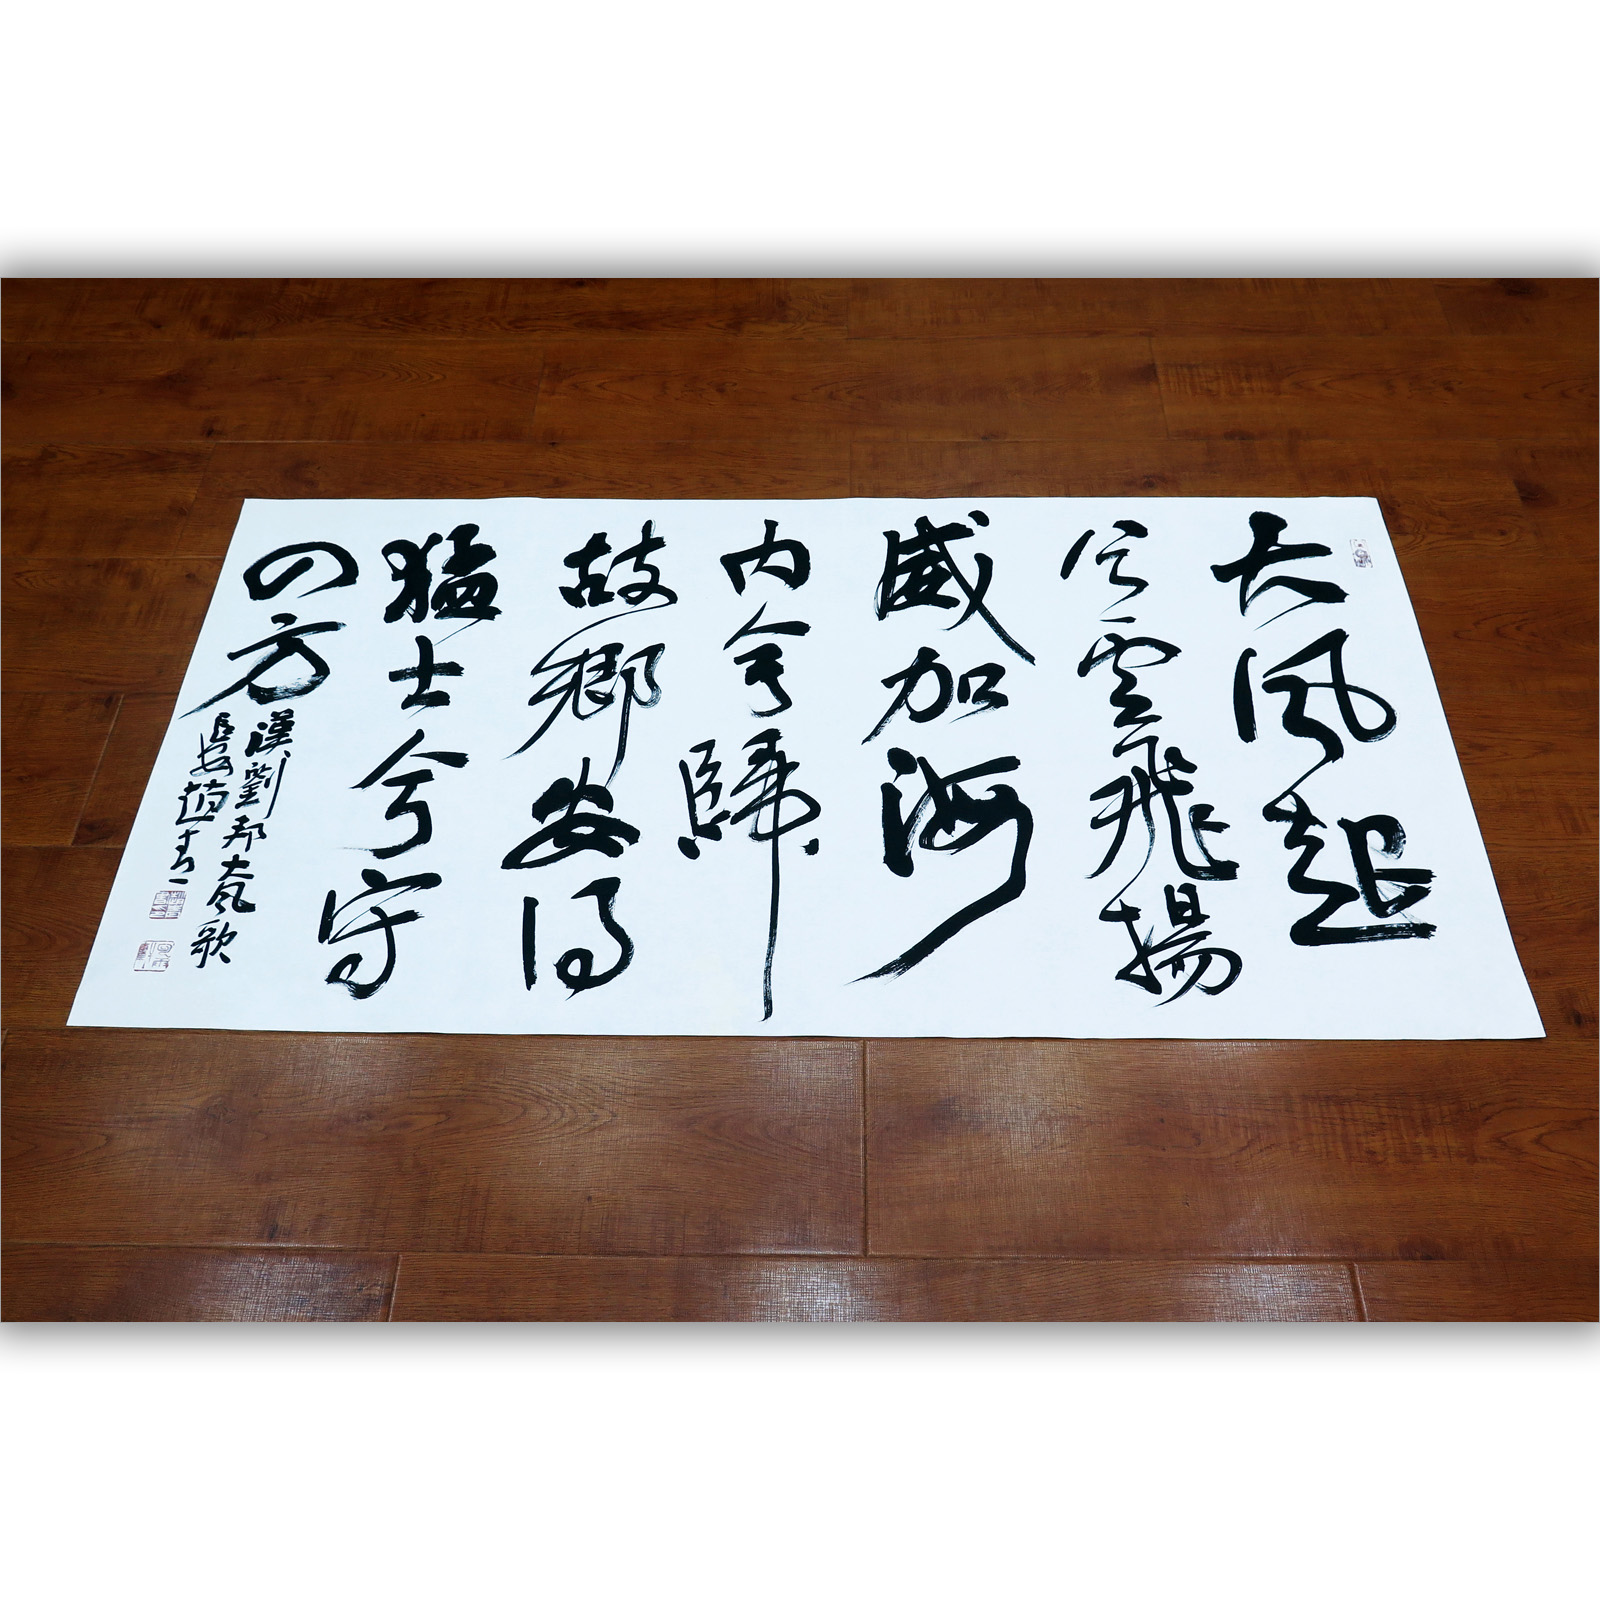 大風起
兮雲飛揚
威加海
内兮歸
故鄉安得
猛士兮守
四方
漢劉邦大風歌
長安趙